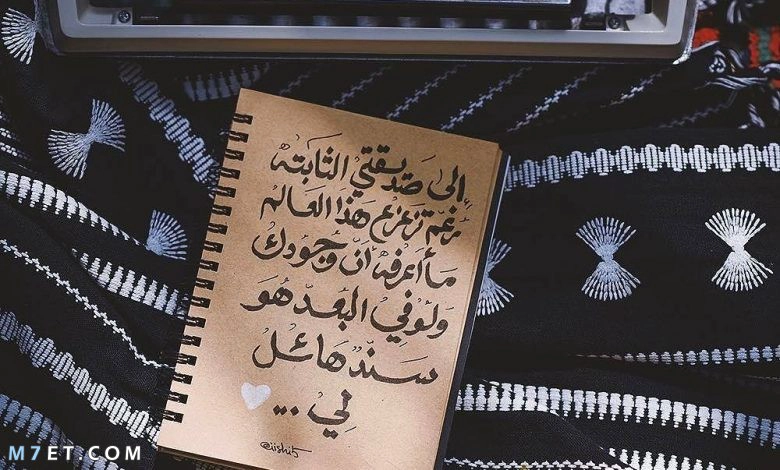 إلى صَديقتي الثابته
رُغم تزعزع هَذا العالم
مَا أعرفه أنّ وجُودك
وَلوفي البُعد هُوَ
سَندّ هَائل
لِي ...
@iishi5
M7ET.COM